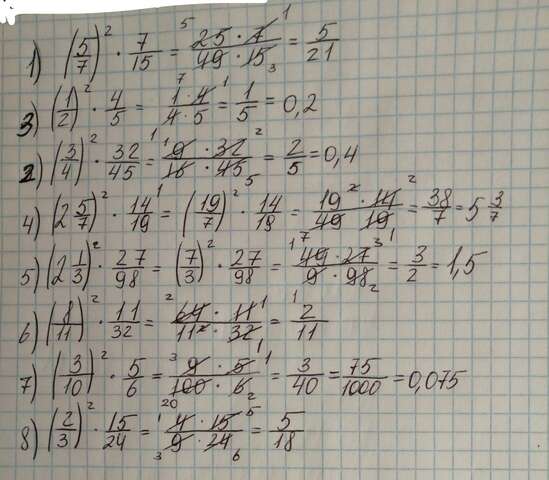 1) (5/7)² · 7/15 = 25 · 7 / 49 · 15 = 5/21
3) (1/2)² · 4/5 = 1 · 4 / 4 · 5 = 1/5 = 0,2
2) (3/4)² · 32/45 = 9 · 32 / 16 · 45 = 2/5 = 0,4
4) (2 5/7)² · 14/19 = (19/7)² · 14/19 = 19² · 14 / 49 · 19 = 38/7 = 5 3/7
5) (2 1/3)² · 27/98 = (7/3)² · 27/98 = 49 · 27 / 9 · 98 = 3/2 = 1,5
6) (8/11)² · 11/32 = 64 · 11 / 11² · 32 = 2/11
7) (3/10)² · 5/6 = 9 · 5 / 100 · 6 = 3/40 = 75/1000 = 0,075
8) (2/3)² · 15/24 = 4 · 15 / 9 · 24 = 5/18